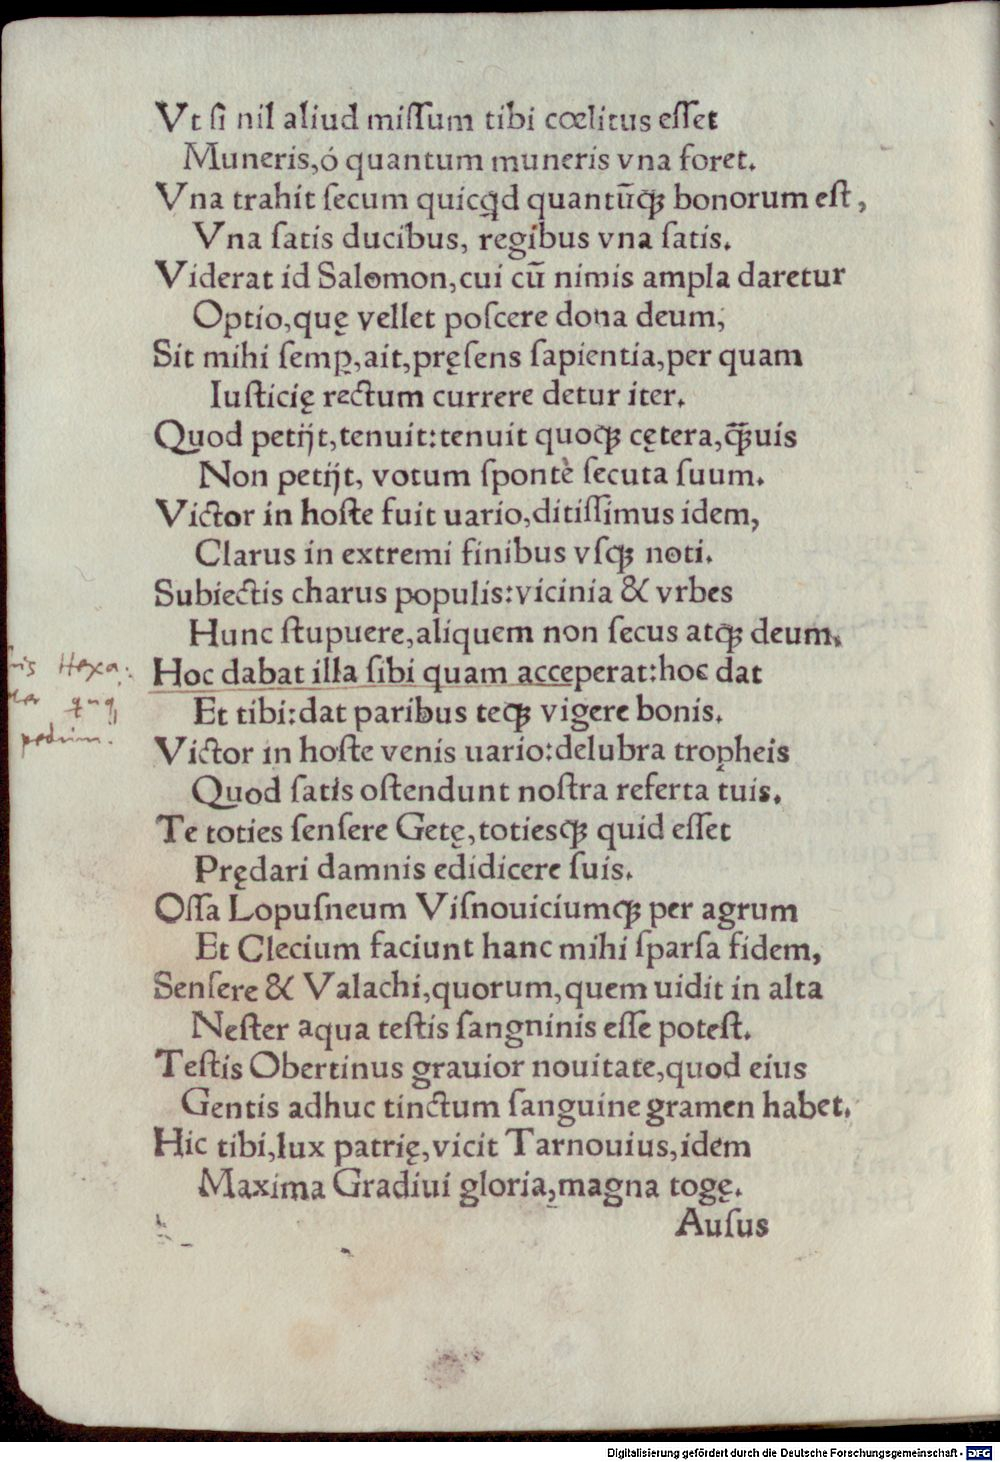 Vt ſi nil aliud miſſum tibi cœlitus eſſet
Muneris,ó quantum muneris vna foret.
Vna trahit ſecum quicꝗd quantūqꝫ bonorum eſt,
Vna ſatis ducibus, regibus vna ſatis.
Viderat id Salomon,cui cū nimis ampla daretur
Optio,quę vellet poſcere dona deum,
Sit mihi ſemꝑ,ait,pręſens ſapientia,per quam
Iuſticię rectum currere detur iter.
Quod petijt,tenuit:tenuit quoqꝫ cętera,qꝫ̄uis
Non petijt, votum ſpontè ſecuta ſuum.
Victor in hoſte fuit uario,ditiſſimus idem,
Clarus in extremi finibus vſqꝫ noti.
Subiectis charus populis:vicinia & vrbes
Hunc ſtupuere,aliquem non ſecus atqꝫ deum.
Hoc dabat illa ſibi quam acceperat:hoc dat
Hexa
pedum.
Et tibi:dat paribus teqꝫ vigere bonis.
Victor in hoſte venis uario:delubra tropheis
Quod ſatis oſtendunt noſtra referta tuis.
Te toties ſenſere Getę,totiesqꝫ quid eſſet
Prędari damnis edidicere ſuis.
Oſſa Lopuſneum Viſnouiciumqꝫ per agrum
Et Clecium faciunt hanc mihi ſparſa fidem,
Senſere & Valachi,quorum,quem uidit in alta
Neſter aqua teſtis ſangninis eſſe poteſt.
Teſtis Obertinus grauior nouitate,quod eius
Gentis adhuc tinctum ſanguine gramen habet.
Hic tibi,lux patrię,vicit Tarnouius,idem
Maxima Gradiui gloria,magna togę.
Auſus
Digitalisierung gefördert durch die Deutsche Forschungsgemeinschaft - DFG